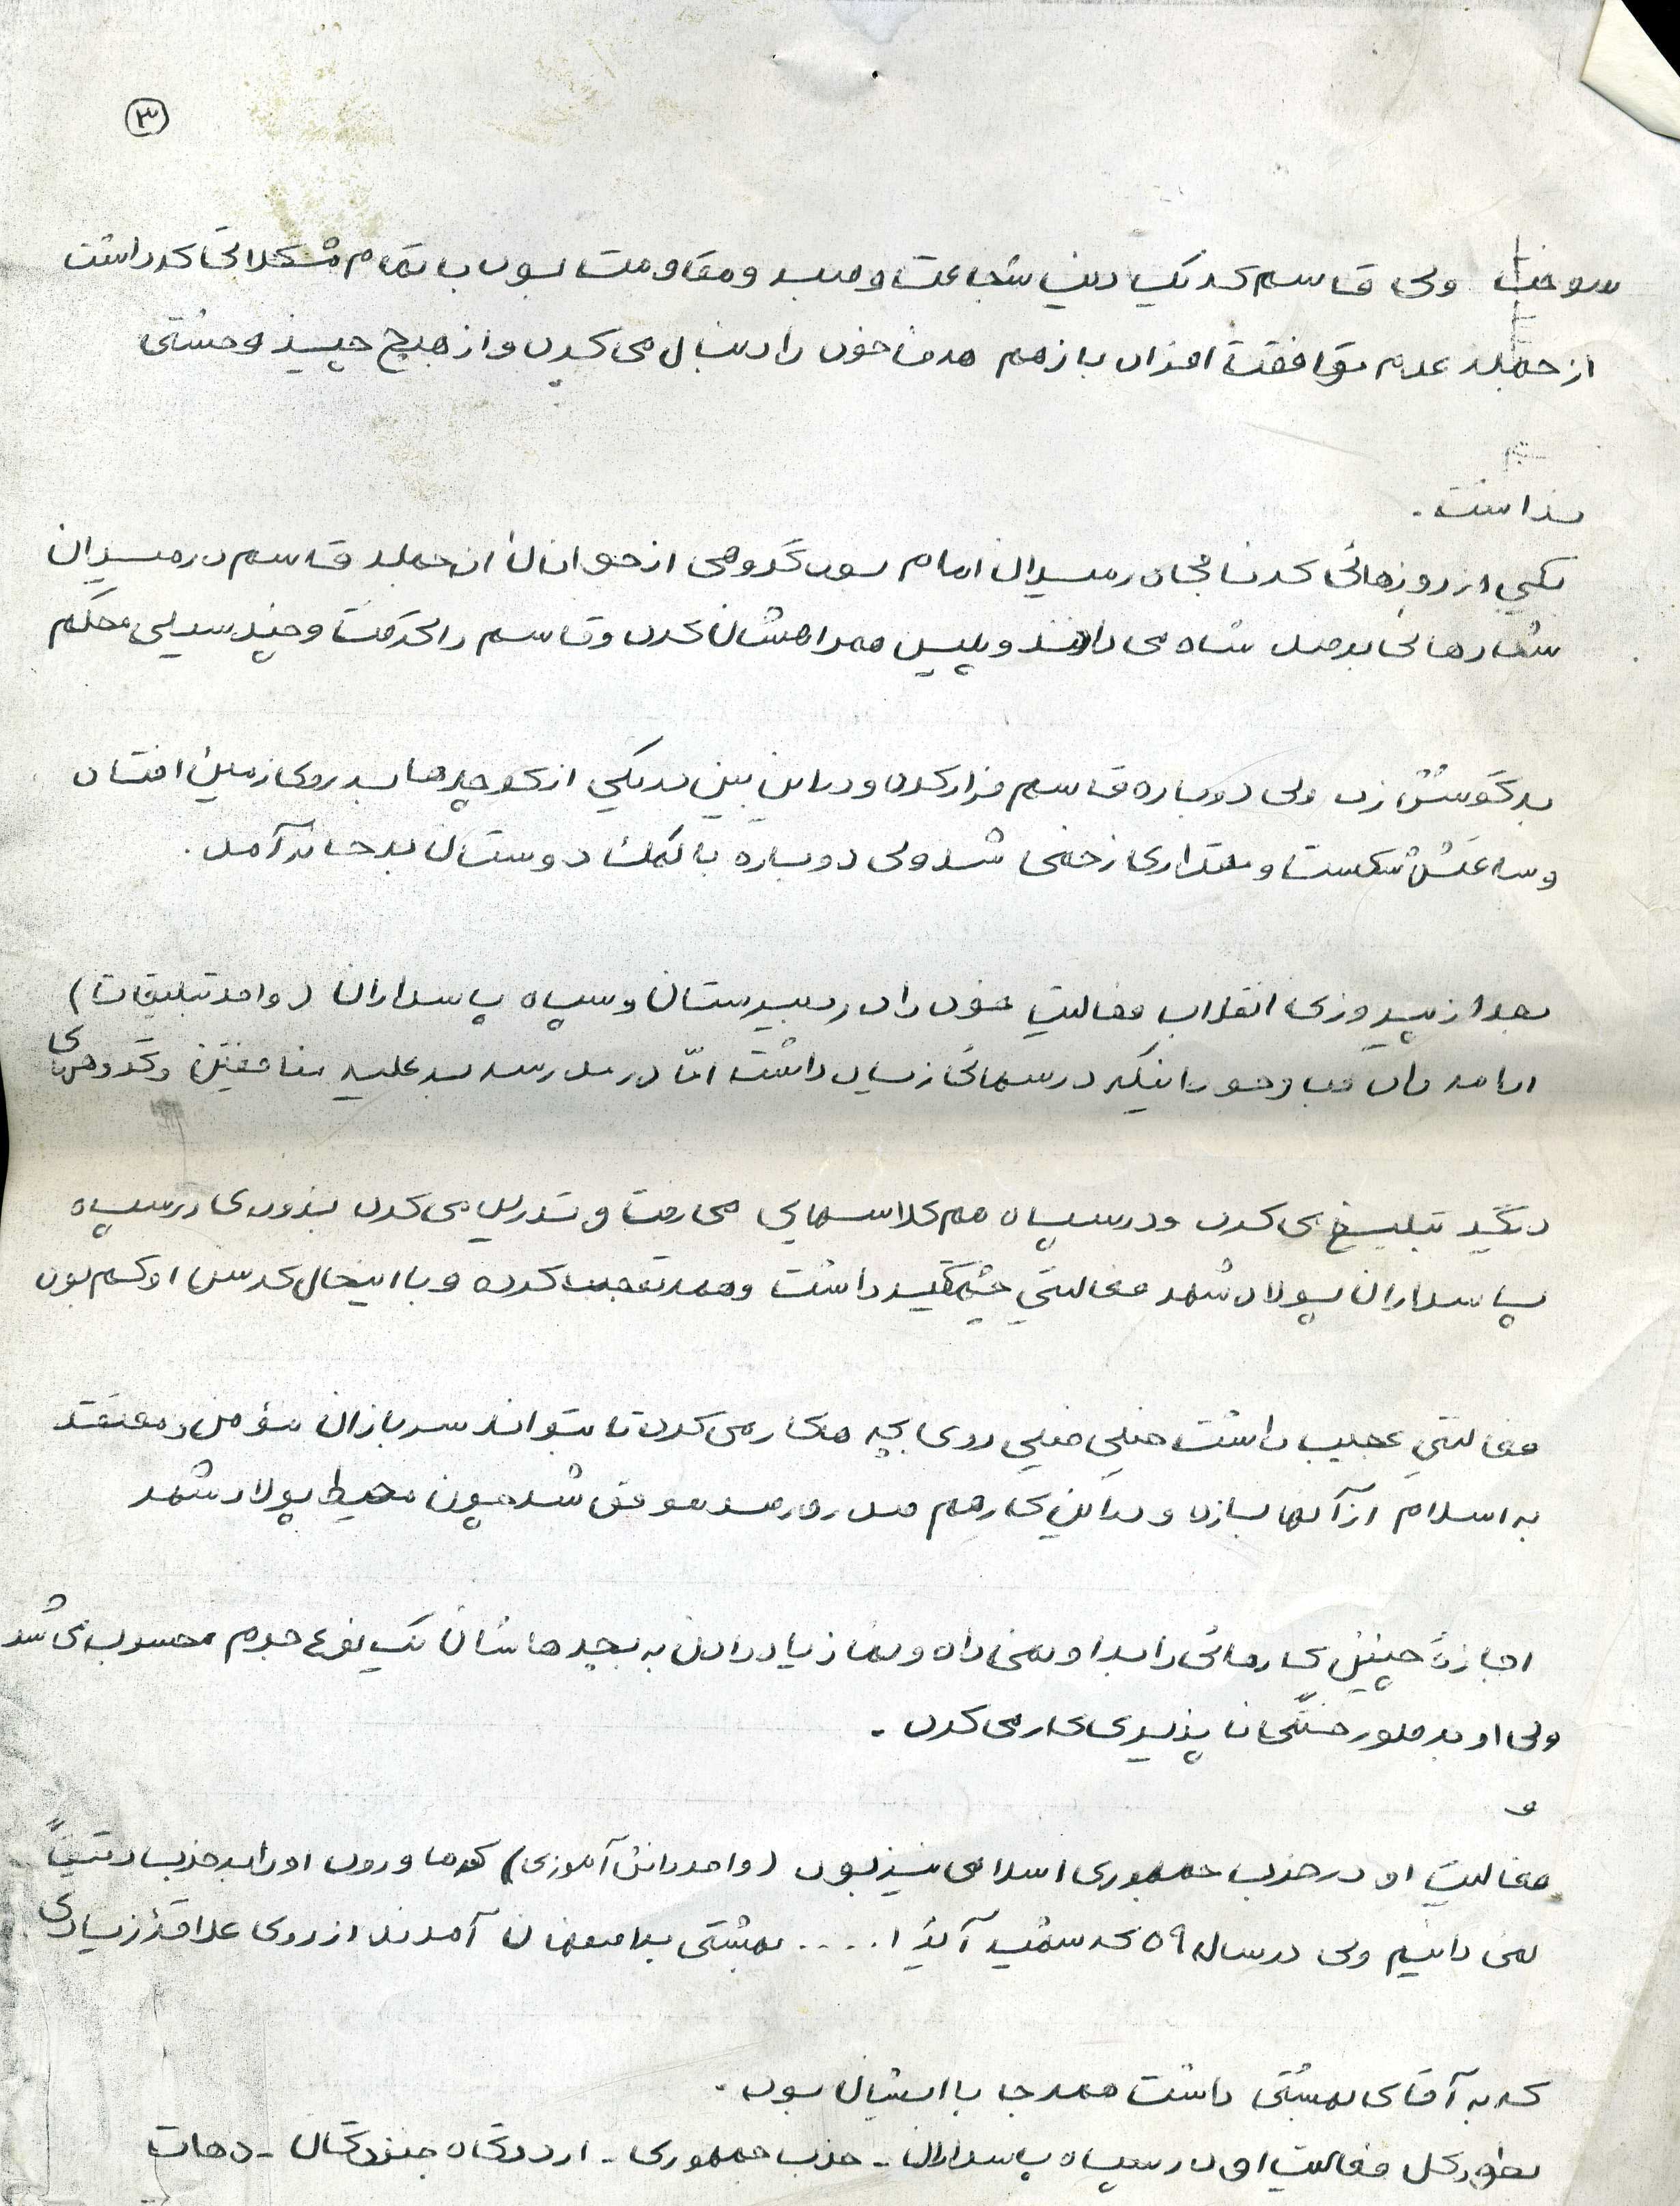 ۳
سوخت ولی قاسم که یک دنیا شجاعت و صبر و مقاومت بود با تمام مشکلاتی که داشت
از جمله عدم توافقت افراد باز هم هدف خود را دنبال می کرد و از هیچ چیز وحشتی
نداشت .
یکی از روزهائی که در میدان امام بود گروهی از جوانان از جمله قاسم در میدان
شعارهائی بر ضد شاه می دادند و پلیس همراهشان کرد و قاسم را گرفت و چند سیلی محکم
به گوشش زد ولی دوباره قاسم فرار کرد و در این بین در یکی از کوچه ها به روی زمین افتاد
و ساعتش شکست و مقداری زخمی شد ولی دوباره با کمک دوستان به خانه آمد .
بعد از پیروزی انقلاب فعالیت خود را در دبیرستان و سپاه پاسداران (واحد تبلیغات)
ادامه داد و با وجود اینکه درسهائی زیاد داشت امّا در مدرسه بر علیه منافقین و گروههای
دیگر تبلیغ می کرد و در سپاه هم کلاسهایی می رفت و تدریس می کرد بزودی در سپاه
پاسداران پولادشهر فعالیتی چشمگیر داشت و همه تعجب کرده و با اینحال که سن او کم بود
فعالیتی عجیب داشت خیلی خیلی روی بچه ها کار می کرد تا بتواند سربازان مؤمن و معتقد
به اسلام از آنها بسازد و در این کار هم صد در صد موفق شد چون محیط پولادشهر
اجازهٔ چنین کارهائی را به او نمی داد و نماز یاد دادن به بچه هاشان یک نوع جرم محسوب می شد
ولی او به طور خستگی ناپذیری کار می کرد .
و
فعالیت او در حزب جمهوری اسلامی نیز بود (واحد دانش آموزی) که ما ورود او را به حزب دقیقاً
نمی دانیم ولی در سال ۵۹ که شهید آیة ا.... بهشتی به اصفهان آمدند از روی علاقهٔ زیادی
که به آقای بهشتی داشت همه جا با ایشان بود .
بطور کل فعالیت او در سپاه پاسداران - حزب جمهوری - اردوگاه جنگ - دهات